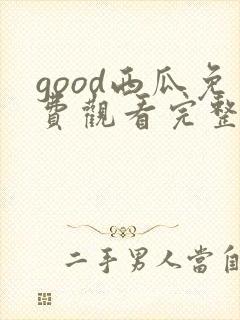 good西瓜免
費觀看完整
二手男人當自